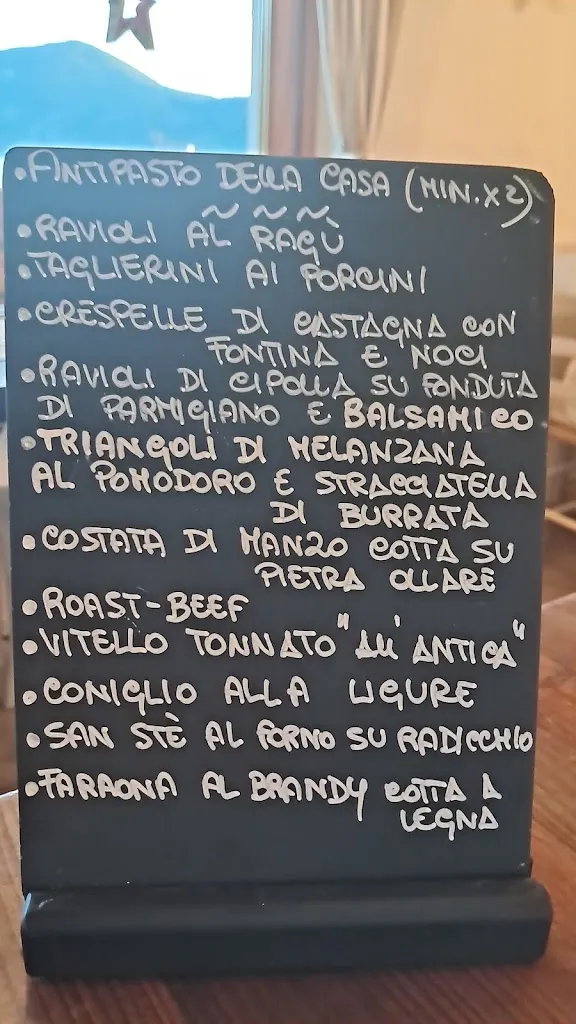 • ANTIPASTO DELLA CASA (MIN. X 2)
~ ~ ~
• RAVIOLI AL RAGÙ
• TAGLIERINI AI PORCINI
• CRESPELLE DI CASTAGNA CON
FONTINA E NOCI
• RAVIOLI DI CIPOLLA SU FONDUTA
DI PARMIGIANO E BALSAMICO
• TRIANGOLI DI MELANZANA
AL POMODORO E STRACCIATELLA
DI BURRATA
• COSTATA DI MANZO COTTA SU
PIETRA OLLARE
• ROAST-BEEF
• VITELLO TONNATO "ALL'ANTICA"
• CONIGLIO ALLA LIGURE
• SAN STÈ AL FORNO SU RADICCHIO
• FARAONA AL BRANDY COTTA A
LEGNA